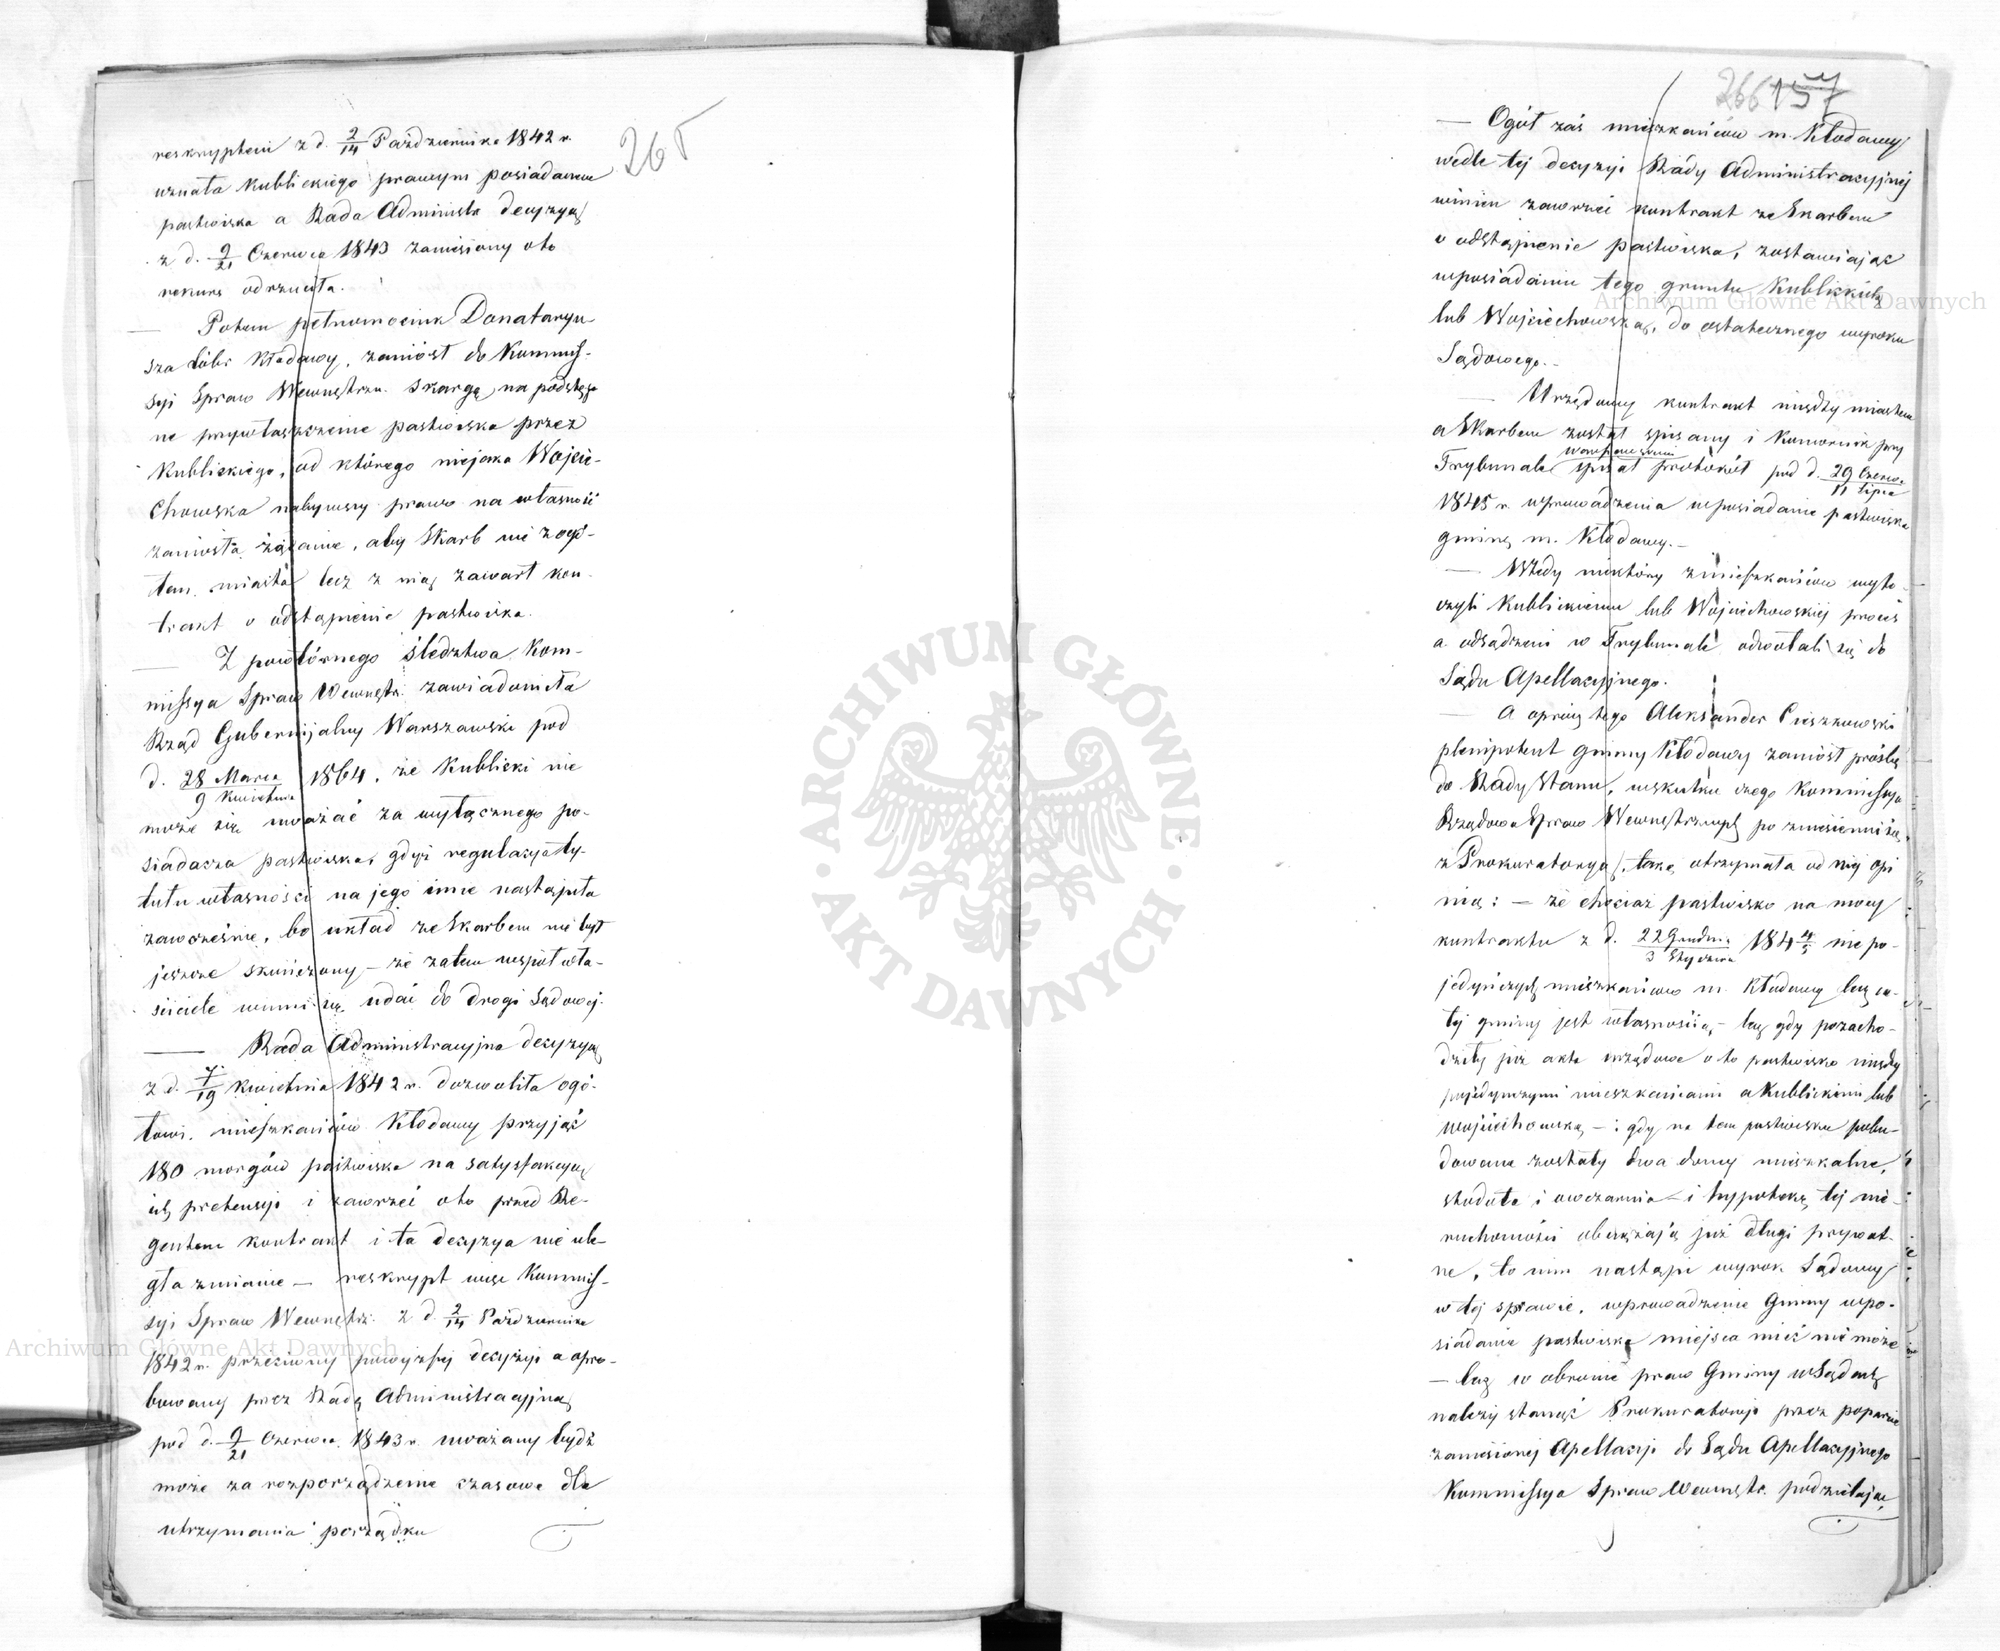 265
reskryptem z d. 2/14 Października 1842 r.
uznała Kublickiego prawym posiadaczem
pastwiska a Rada Administr decyzyą
z d. 9/21 Czerwca 1843 zaniesiony oto
rekurs odrzuciła.
— Potem pełnomocnik Donataryu-
sza dóbr Kłodawy, zaniósł do Kommis-
syi Spraw Wewnętrzn. skargę na podstęp-
ne przywłaszczenie pastwiska przez
Kublickiego, od którego niejaka Wojcie-
chowska nabywszy prawo na własność
zaniosła żądanie, aby Skarb nie z ogó-
łem miasta lecz z nią zawarł kon-
trakt o odstąpienie pastwiska.
— Z powtórnego śledztwa Kom-
missya Spraw Wewnętr. zawiadomiła
Rząd Gubernijalny Warszawski pod
d. 28 Marca/9 Kwietnia 1864, że Kublicki nie
może się uważać za wyłącznego po-
siadacza pastwiska, gdyż regulacya ty-
tułu własności na jego imie nastąpiła
zawcześnie, bo układ ze Skarbem nie był
jeszcze skończony — że zatem współwła-
ściciele winni się udać do drogi Sądowej.
— Rada Administracyjna decyzyą
z d. 7/19 Kwietnia 1842 r. dozwoliła ogó-
łowi mieszkańców Kłodawy przyjąć
180 morgów pastwiska na satysfakcyą
ich pretensyi i zawrzeć oto przed Re-
gentem kontrakt i ta decyzya nie ule-
gła zmianie — reskrypt więc Kommis-
syi Spraw Wewnętrz. z d. 2/14 Października
1842 r. przeciwny powyższej decyzyi a apro-
bowany przez Radę Administracyjną
pod d. 9/21 Czerwca 1843 r. uważany bydź
może za rozporządzenie czasowe dla
utrzymania porządku
266 157
— Ogół zaś mieszkańców m. Kłodawy
wedle tej decyzyi Rady Administracyjnej
winien zawrzeć kontrakt ze Skarbem
o odstąpienie pastwiska, zostawiając
w posiadaniu tego gruntu Kublickich
lub Wojciechowską, do ostatecznego wyroku
Sądowego. —
— Urzędowy kontrakt między miastem
a Skarbem został spisany i Komornik przy
Trybunale Warszawskim spisał protokół pod d. 29 Czerwca/11 Lipca
1845 r. wprowadzenia w posiadanie pastwiska
gminę m. Kłodawy. —
— Wtedy niektórzy z mieszkańców wyto-
czyli Kublickiemu lub Wojciechowskiej proces
a odsądzeni w Trybunale odwołali się do
Sądu Apellacyjnego.
— A oprócz tego Aleksander Cieszkowski
plenipotent gminy Kłodawy zaniósł prośbę
do Rady Stanu, wskutku czego Kommissya
Rządowa Spraw Wewnętrznych po zniesieniu się
z Prokuratoryą, taką otrzymała od niej opi
nią: — że chociaż pastwisko na mocy
kontraktu z d. 22 Grudnia/3 Stycznia 184 4/5 nie po-
jedyńczych mieszkańców m. Kłodawy lecz ca-
łej gminy jest własnością — lecz gdy pozacho-
dziły już akta urzędowe o to pastwisko między
pojedynczymi mieszkańcami a Kublickimi lub
Wojciechowską — : gdy na tem pastwisku pobu-
dowane zostały dwa domy mieszkalne,
stodoła i owczarnia — i hypotekę tej nie-
ruchomości obciążają już długi prywat-
ne, to nim nastąpi wyrok Sądowy
w tej sprawie, wprowadzenie Gminy w po-
siadanie pastwiska miejsca mieć nie może
— lecz w obronie praw Gminy w Sądach
należy stanąć Prokuratoryi przez poparcie
zaniesionej Apellacyi do Sądu Apellacyjnego
Kommissya Spraw Wewnętr. podzielając
Archiwum Główne Akt Dawnych
Archiwum Główne Akt Dawnych
ARCHIWUM GŁÓWNE
AKT DAWNYCH